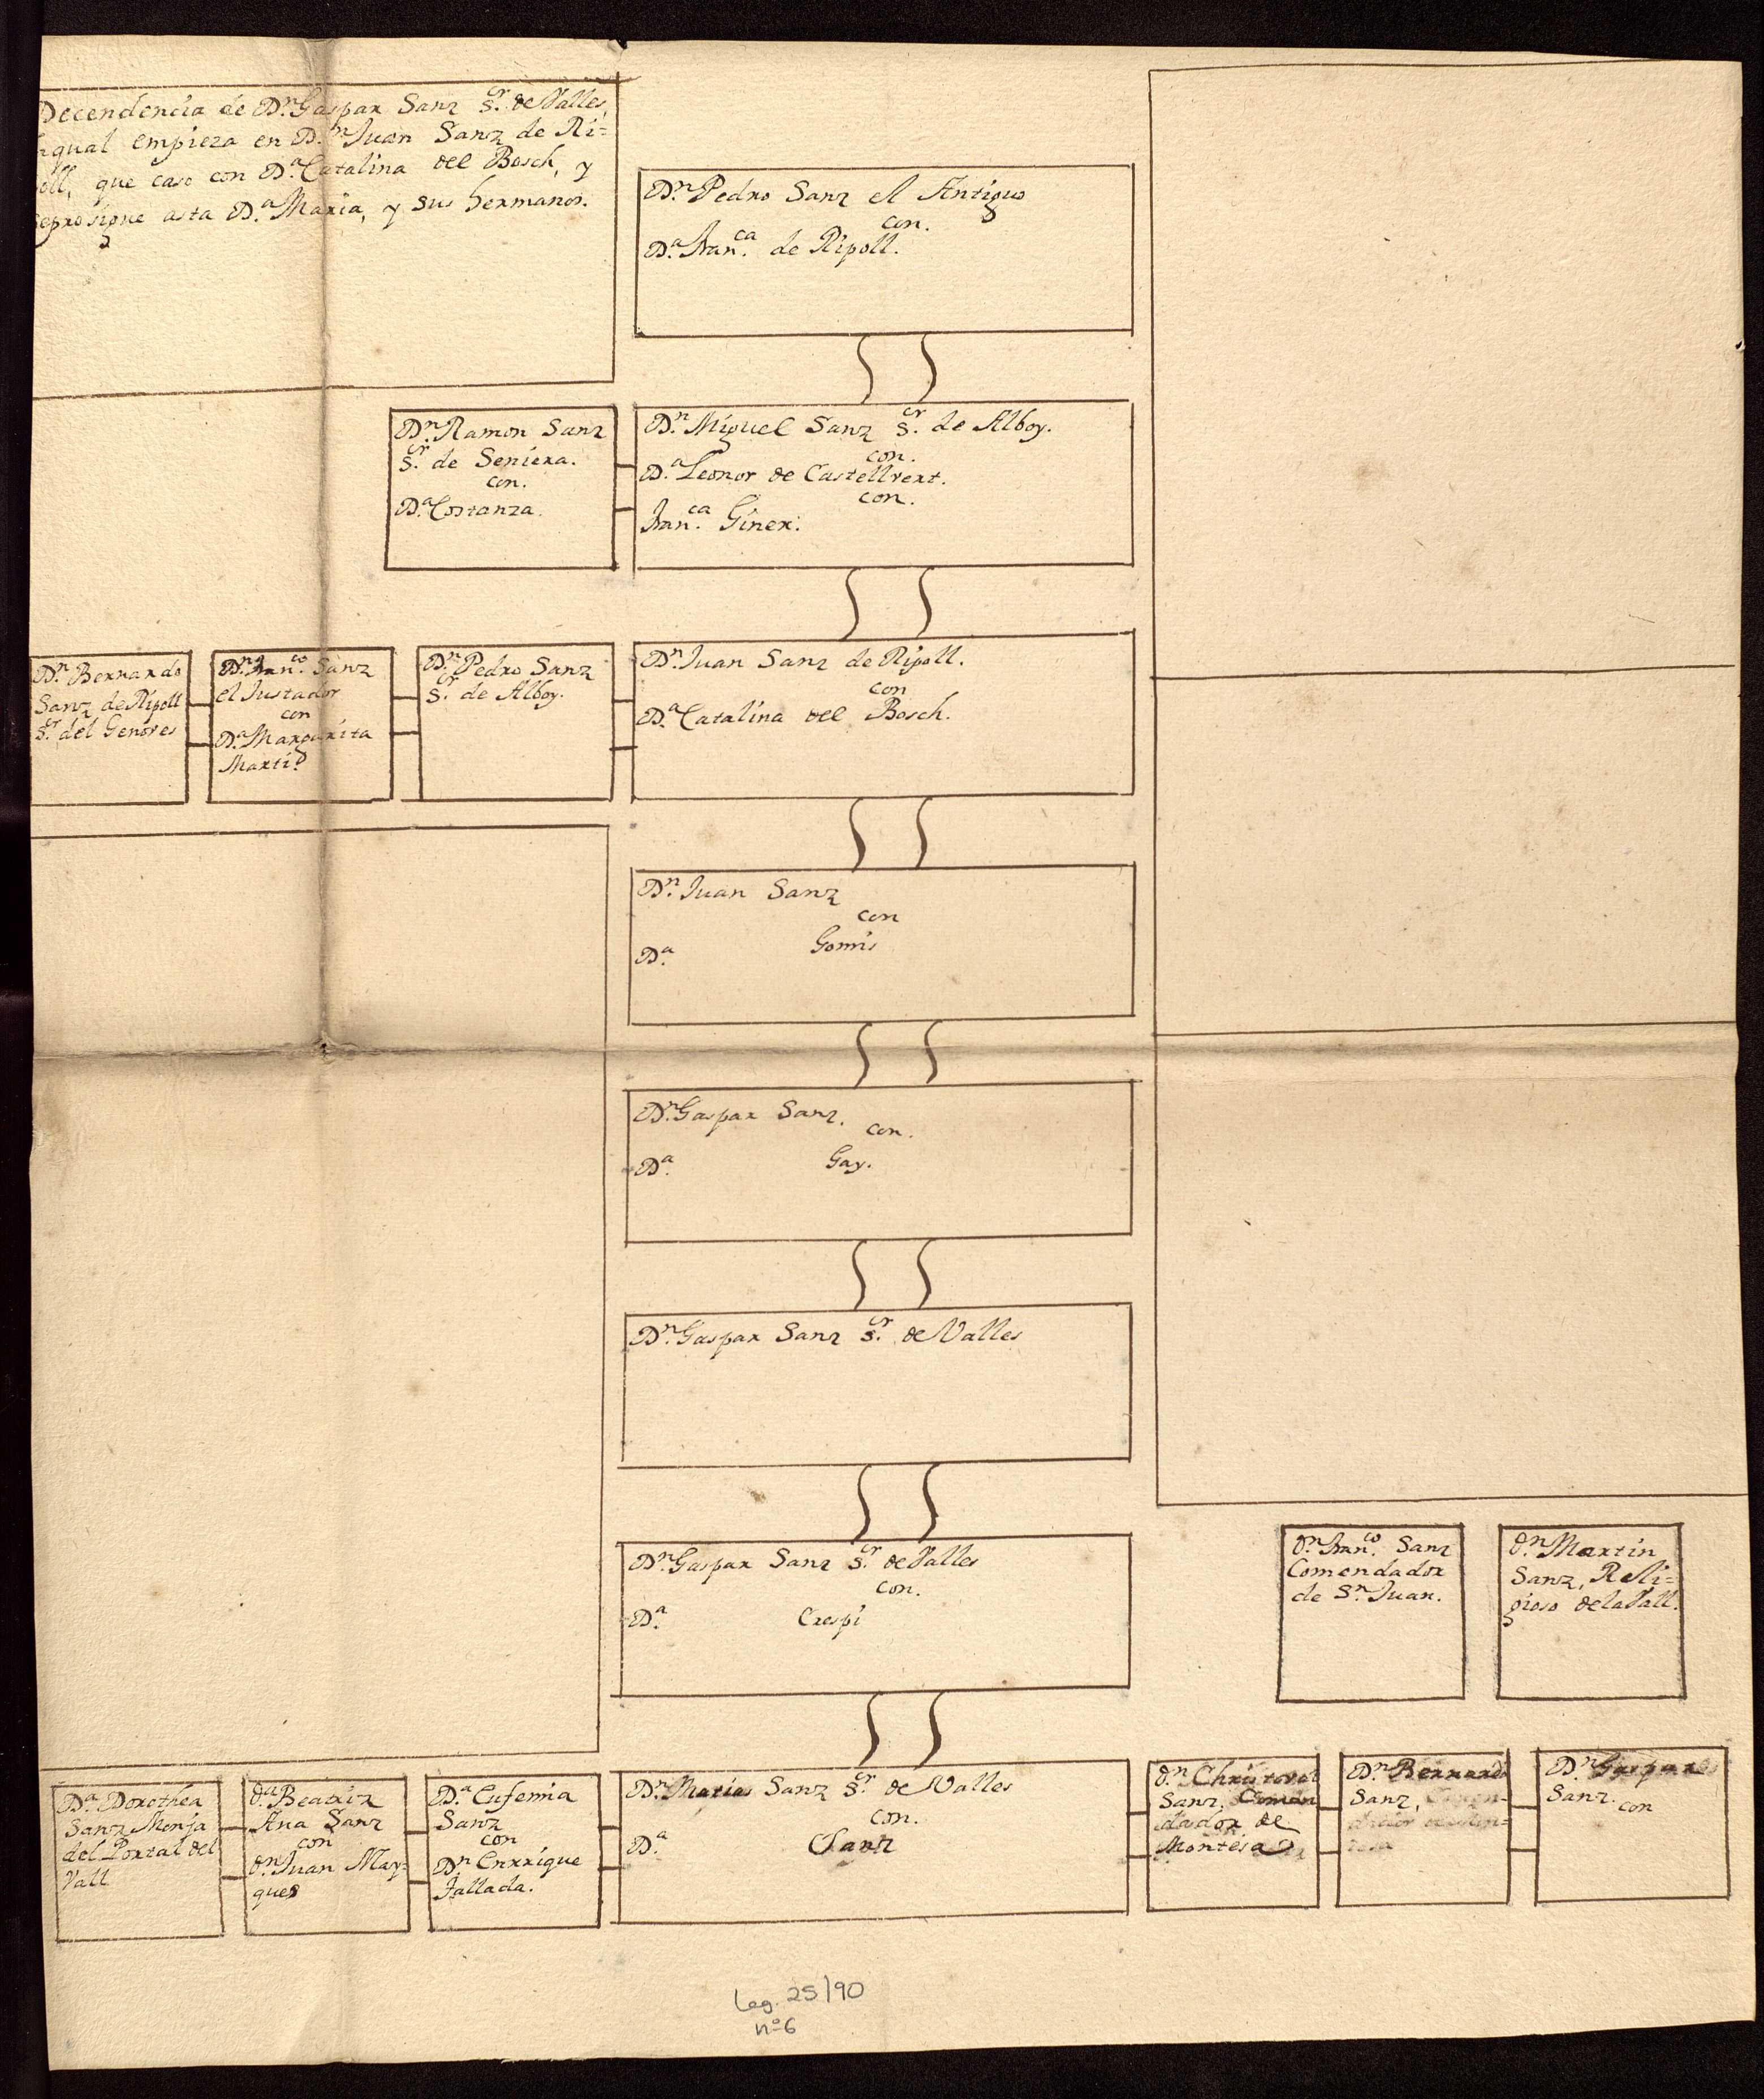 Decendencia de Dn. Gaspar Sanz sr. de Valles,
qual empieza en Dn. Juan Sanz de Ri=
oll, que caso con Da. Catalina del Bosch, y
seprosigue asta Da. Maria, y sus hermanos.
Dn. Pedro Sanz el Antiguo
con.
Da. Franca. de Ripoll.
Dn. Ramon Sanz
sr. de Seniera.
con.
Da. Costanza.
Dn. Miguel Sanz sr. de Alboy.
con.
Da. Leonor de Castellvert.
con.
Franca. Giner.
Dn. Bernardo
Sanz de Ripoll
sr. del Genoves
Dn. Franco. Sanz
el Justador
con
Da. Margarita
Marti
Dn. Pedro Sanz
sr. de Alboy.
Dn. Juan Sanz de Ripoll.
con
Da. Catalina del Bosch.
Dn. Juan Sanz
con
Da. Gomis
Dn. Gaspar Sanz.
con.
Da. Gay.
Dn. Gaspar Sanz sr. de Valles
Dn. Gaspar Sanz sr. de Valles
con.
Da. Crespi
Dn. Franco. Sanz
Comendador
de Sn. Juan.
Dn. Martin
Sanz, Reli=
gioso dela Vall.
Da. Dorothea
Sanz Monja
del Portal del
Vall
Da. Beatriz
Ana Sanz
con
Dn. Juan Mar=
ques
Da. Eufemia
Sanz
con
Dn. Enrrique
Fallada.
Dn. Matias Sanz sr. de Valles
con.
Da. Sanz
Dn. Christoval
Sanz, Comen
dador de
Montesa
Dn. Bernardo
Sanz,
Dn. Gaspar
Sanz.
con
Leg. 25/90
nº 6